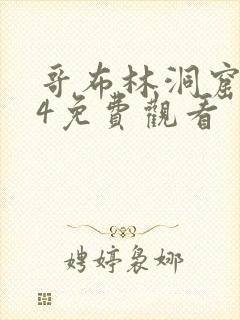 哥布林洞窟
4免費觀看
娉婷裊娜